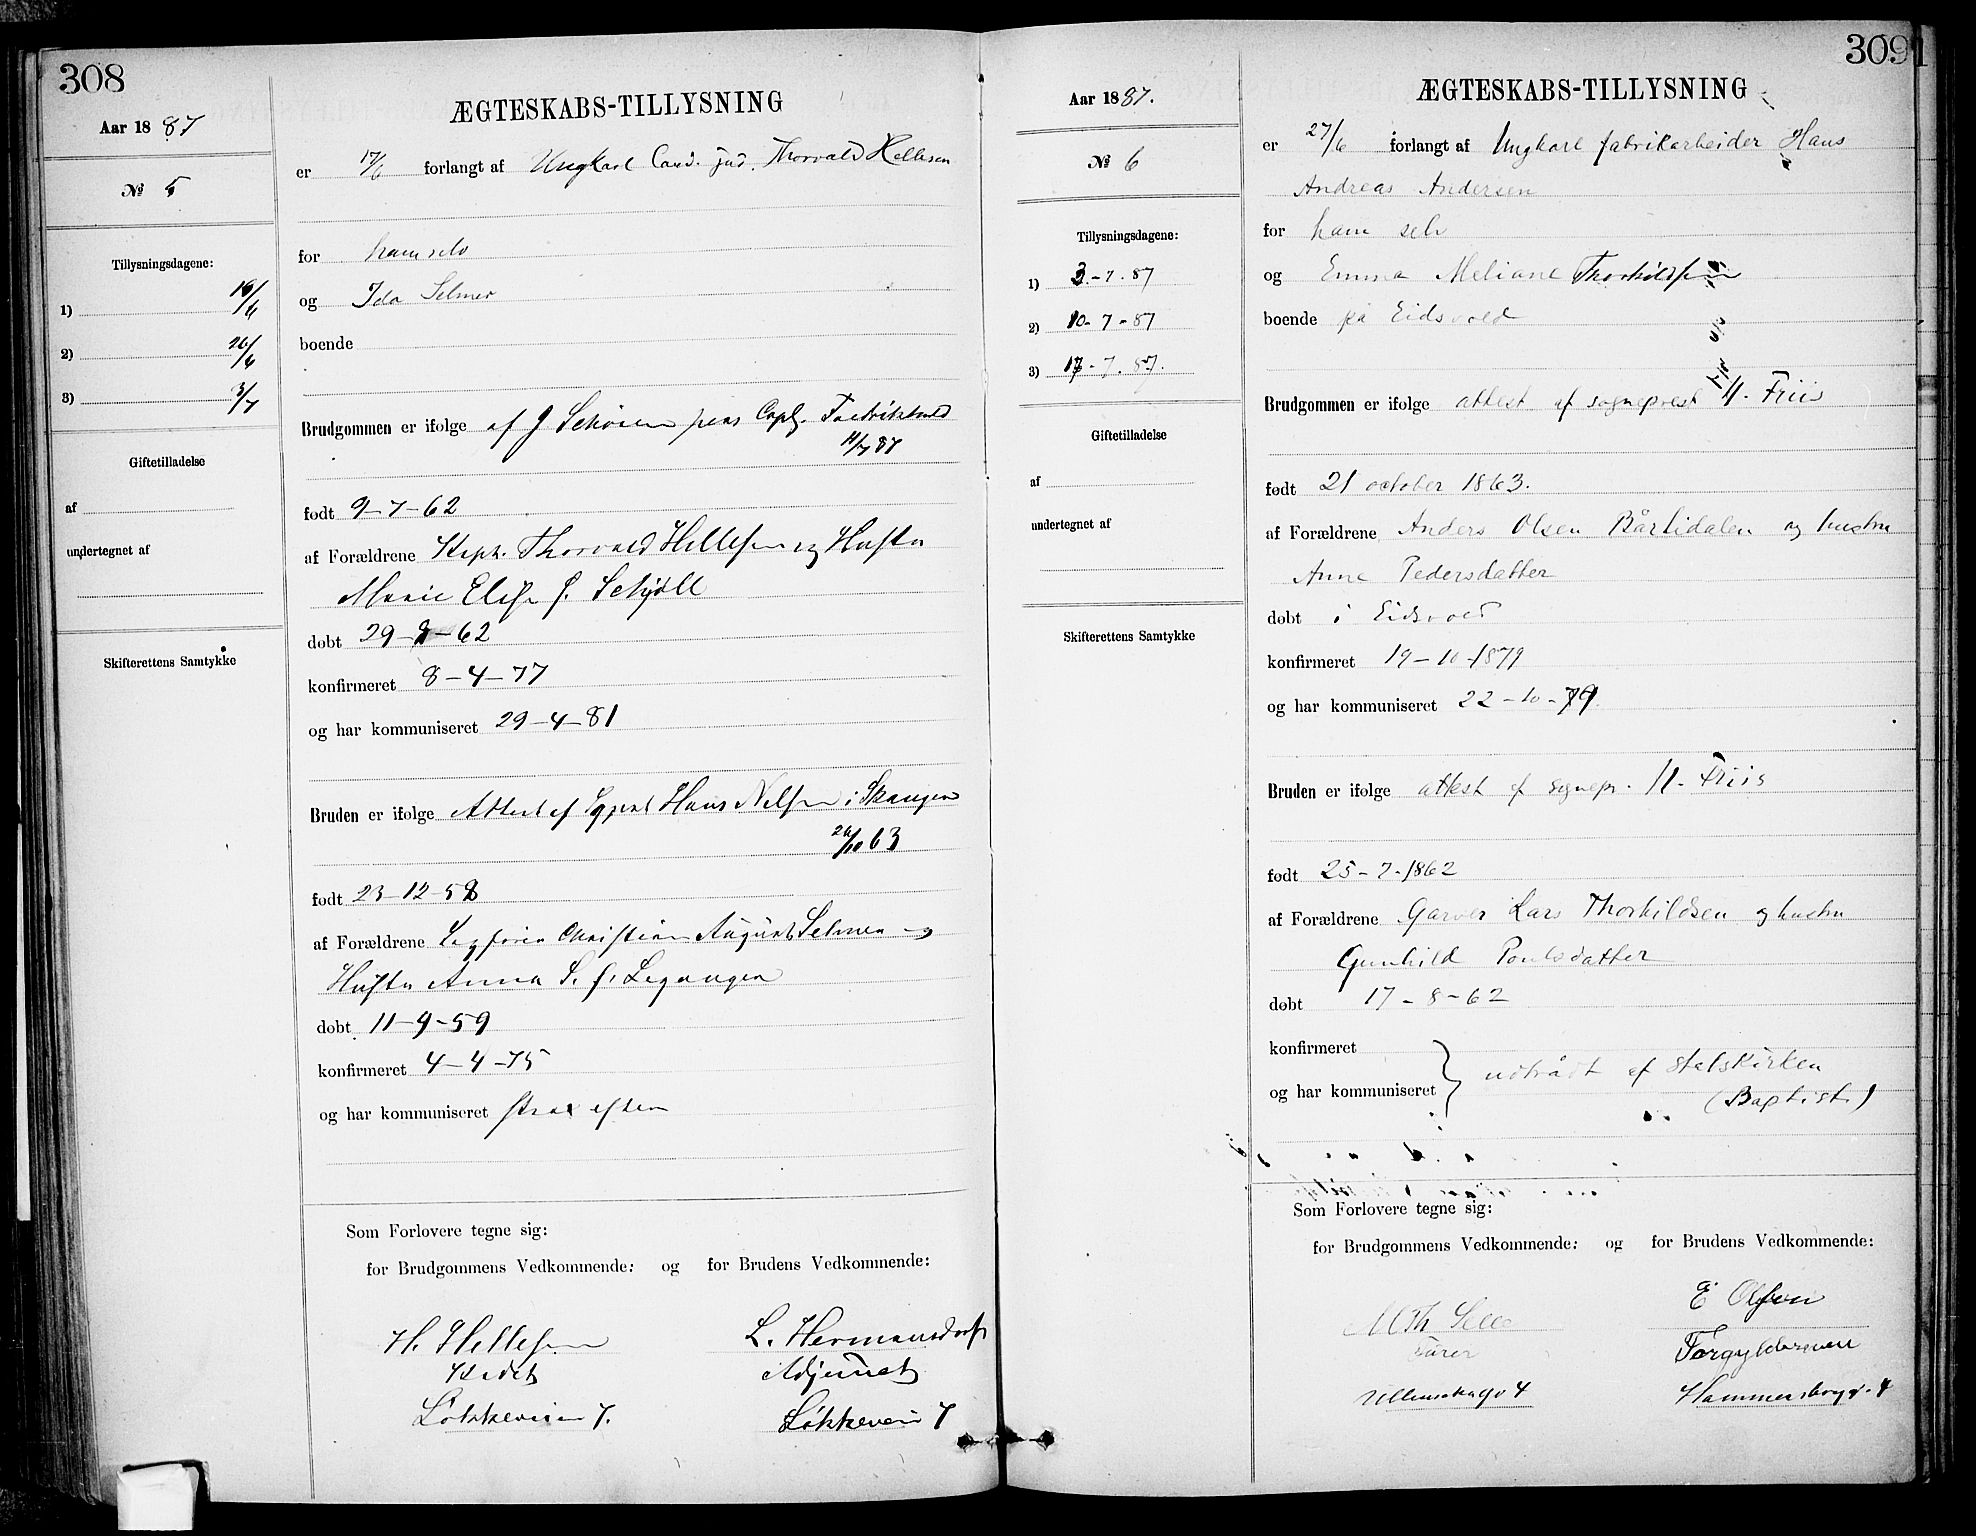 308
Aar 1887
ÆGTESKABS-TILLYSNING
№ 5
er 17/6 forlangt af Ungkarl Cand. jud. Thorvald Hellesen
Tillysningsdagene:
for ham selv
1) 19/6
og Ida Selmer
2) 26/6
boende
3) 3/7
Brudgommen er ifølge af J Schiøren pers Capl. Fredrikshald
11/7 87
Giftetilladelse
af
undertegnet af
født 9-7-62
af Forældrene Kapt. Thorvald Hellesen og Hustru
Marie Elise f. Schjøll
døbt 29-8-62
Skifterettens Samtykke
konfirmeret 8-4-77
og har kommuniseret 29-4-81
Bruden er ifølge Attest af Sgprst Hans Nilsen i Skaugen
24/10 63
født 23-12-58
af Forældrene Sagfører Christian August Selmer og
Hustru Anna S. f. Leganger
døbt 11-9-59
konfirmeret 4-4-75
og har kommuniseret strax efter
Som Forlovere tegne sig:
for Brudgommens Vedkommende: og for Brudens Vedkommende:
H. Hellesen L. Hermansdorf
Kadet Adjunct
Løkkeveien 7. Løkkevein 7
309
Aar 1887.
ÆGTESKABS-TILLYSNING
№ 6
er 27/6 forlangt af Ungkarl fabrikarbeider Hans
Andreas Andersen
Tillysningsdagene:
for ham selv
1) 3-7.87
og Emma Meliane Thorkildsen
2) 10-7-87
boende på Eidsvold
3) 17-7.87.
Brudgommen er ifølge attest af sogneprest H. Friis
Giftetilladelse
af
undertegnet af
født 21 october 1863.
af Forældrene Anders Olsen Bårlidalen og hustru
Anne Pedersdatter
døbt i Eidsvold
Skifterettens Samtykke
konfirmeret 19-10-1879
og har kommuniseret 22-10-79.
Bruden er ifølge attest af sognepr. H. Friis
født 25-7-1862
af Forældrene Garver Lars Thorkildsen og hustru
Gunhild Poulsdatter
døbt 17-8-62
konfirmeret
og har kommuniseret } udtrådt af statskirken
(Baptist)
Som Forlovere tegne sig:
for Brudgommens Vedkommende: og for Brudens Vedkommende:
E Olsen
M Th
Forgyldersvend
Ullensakergd 4 Hammersborgg. 4